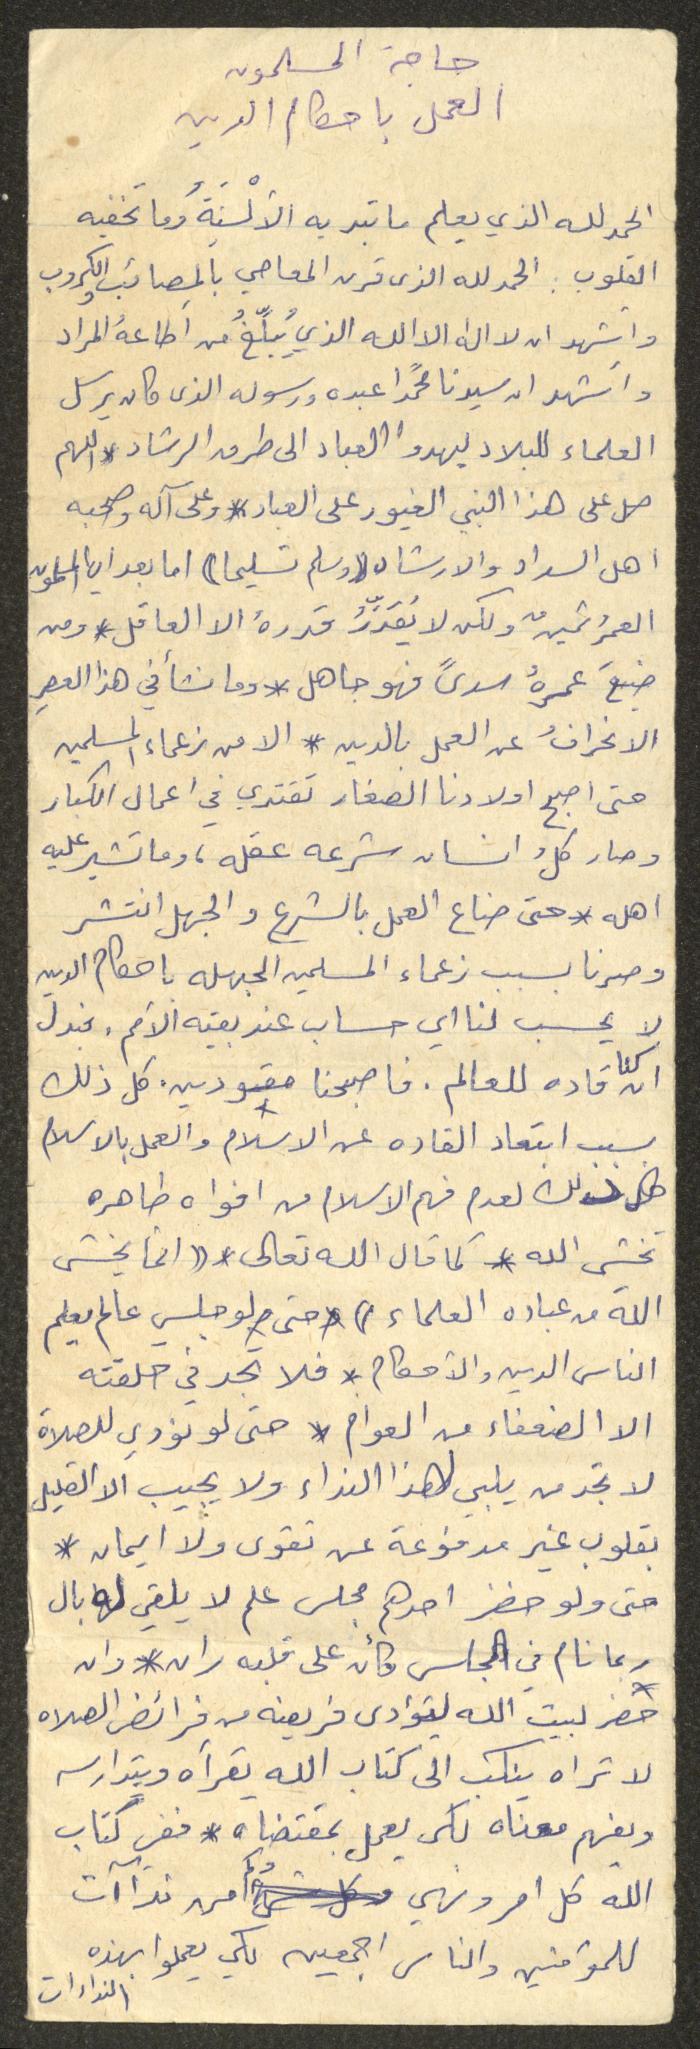 حاجة المسلمون
العمل باحكام الدين
الحمد لله الذي يعلم ما تبديه الألْسِنَةُ وما تخفيه
القلوب . الحمد لله الذى قرن المعاصي بالمصائب والكروب
وأشهد ان لا اله الا الله الذي يُبَلِّغُ من أطاعهُ المراد
وأشهد ان سيدنا محمدًا عبده ورسوله الذى كان يرسل
العلماء للبلاد ليهدوا العباد الى طرق الرشاد * اللهم
صل على هذا النبي الغيور على العباد * وعلى آله وصحبه
اهل السداد والارشاد (وسلم تسليما) اما بعد ايها المسلمون
العمرُ ثمينٌ ولكن لا يُقَدِّرُ قدرهُ الا العاقل * ومن
ضيعَ عمرهُ سدىً فهو جاهل * وما نشأ في هذا العصر
الانحرافُ عن العمل بالدين * الا من زعماء المسلمين
حتى اصبح اولادنا الصغار تقتدي في اعمال الكبار
وصار كلُ انسان شرعه عقله ، وما تشير عليه
اهله * حتى ضاع العمل بالشرع والجهل انتشر
وصرنا بسبب زعماء المسلمين الجهله باحكام الدين
لا يحسب لنا اي حساب عند بقية الأمم . فبدل
ان كنا قاده للعالم . فاصبحنا مقودين . كل ذلك
بسبب ابتعاد القاده عن الاسلام والعمل بالاسلام
كل ذلك لعدم فهم الاسلام من افواه طاهره
تخشى الله * كما قال الله تعالى * (( انما يخشى
الله من عباده العلماء )) * حتى لو جلس عالم يعلم
الناس الدين والأحكام * فلا تجد في حلقته
الا الضعفاء من العوام * حتى لو نودي للصلاة
لا تجد من يلبي لهذا النداء ولا يجيب الا القليل
بقلوب غير مدفوعة عن تقوى ولا ايمان *
حتى ولو حضر احدهم مجلس علم لا يلقي له بال
ربما نام في المجلس وكأن على قلبه ران * وان
حضر لبيت الله ليؤدى فريضه من فرائض الصلاه
لا تراه ينكب الى كتاب الله يقرأه ويتدارسه
ويفهم معناه لكى يعمل بمقتضاه * ففى كتاب
الله كل امر ونهي وكم من ندآآت
للمؤمنين والناس اجمعين لكي يعملوا بهذه
النداءات